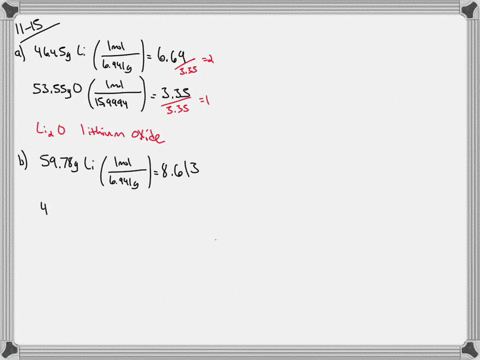 11-15
a) 46.45g Li (1mol/6.941g) = 6.69/3.35 = 2
53.55g O (1mol/15.9994) = 3.35/3.35 = 1
Li₂O lithium oxide
b) 59.78g Li (1mol/6.941g) = 8.613
4